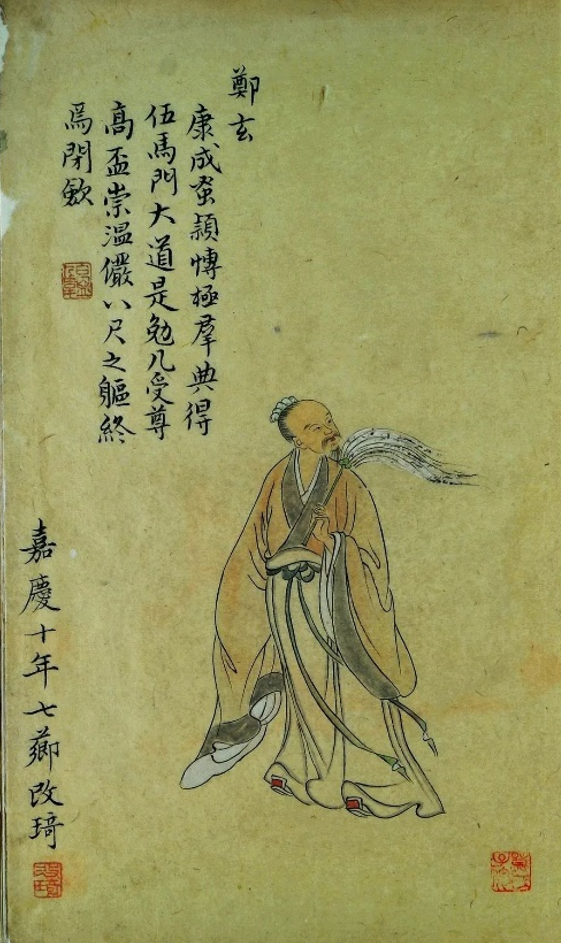 鄭玄
康成蚤頴愽極羣典得
伍馬門大道是勉几受尊
高盃崇温儼八尺之軀終
焉閉歛
嘉慶十年七薌改琦